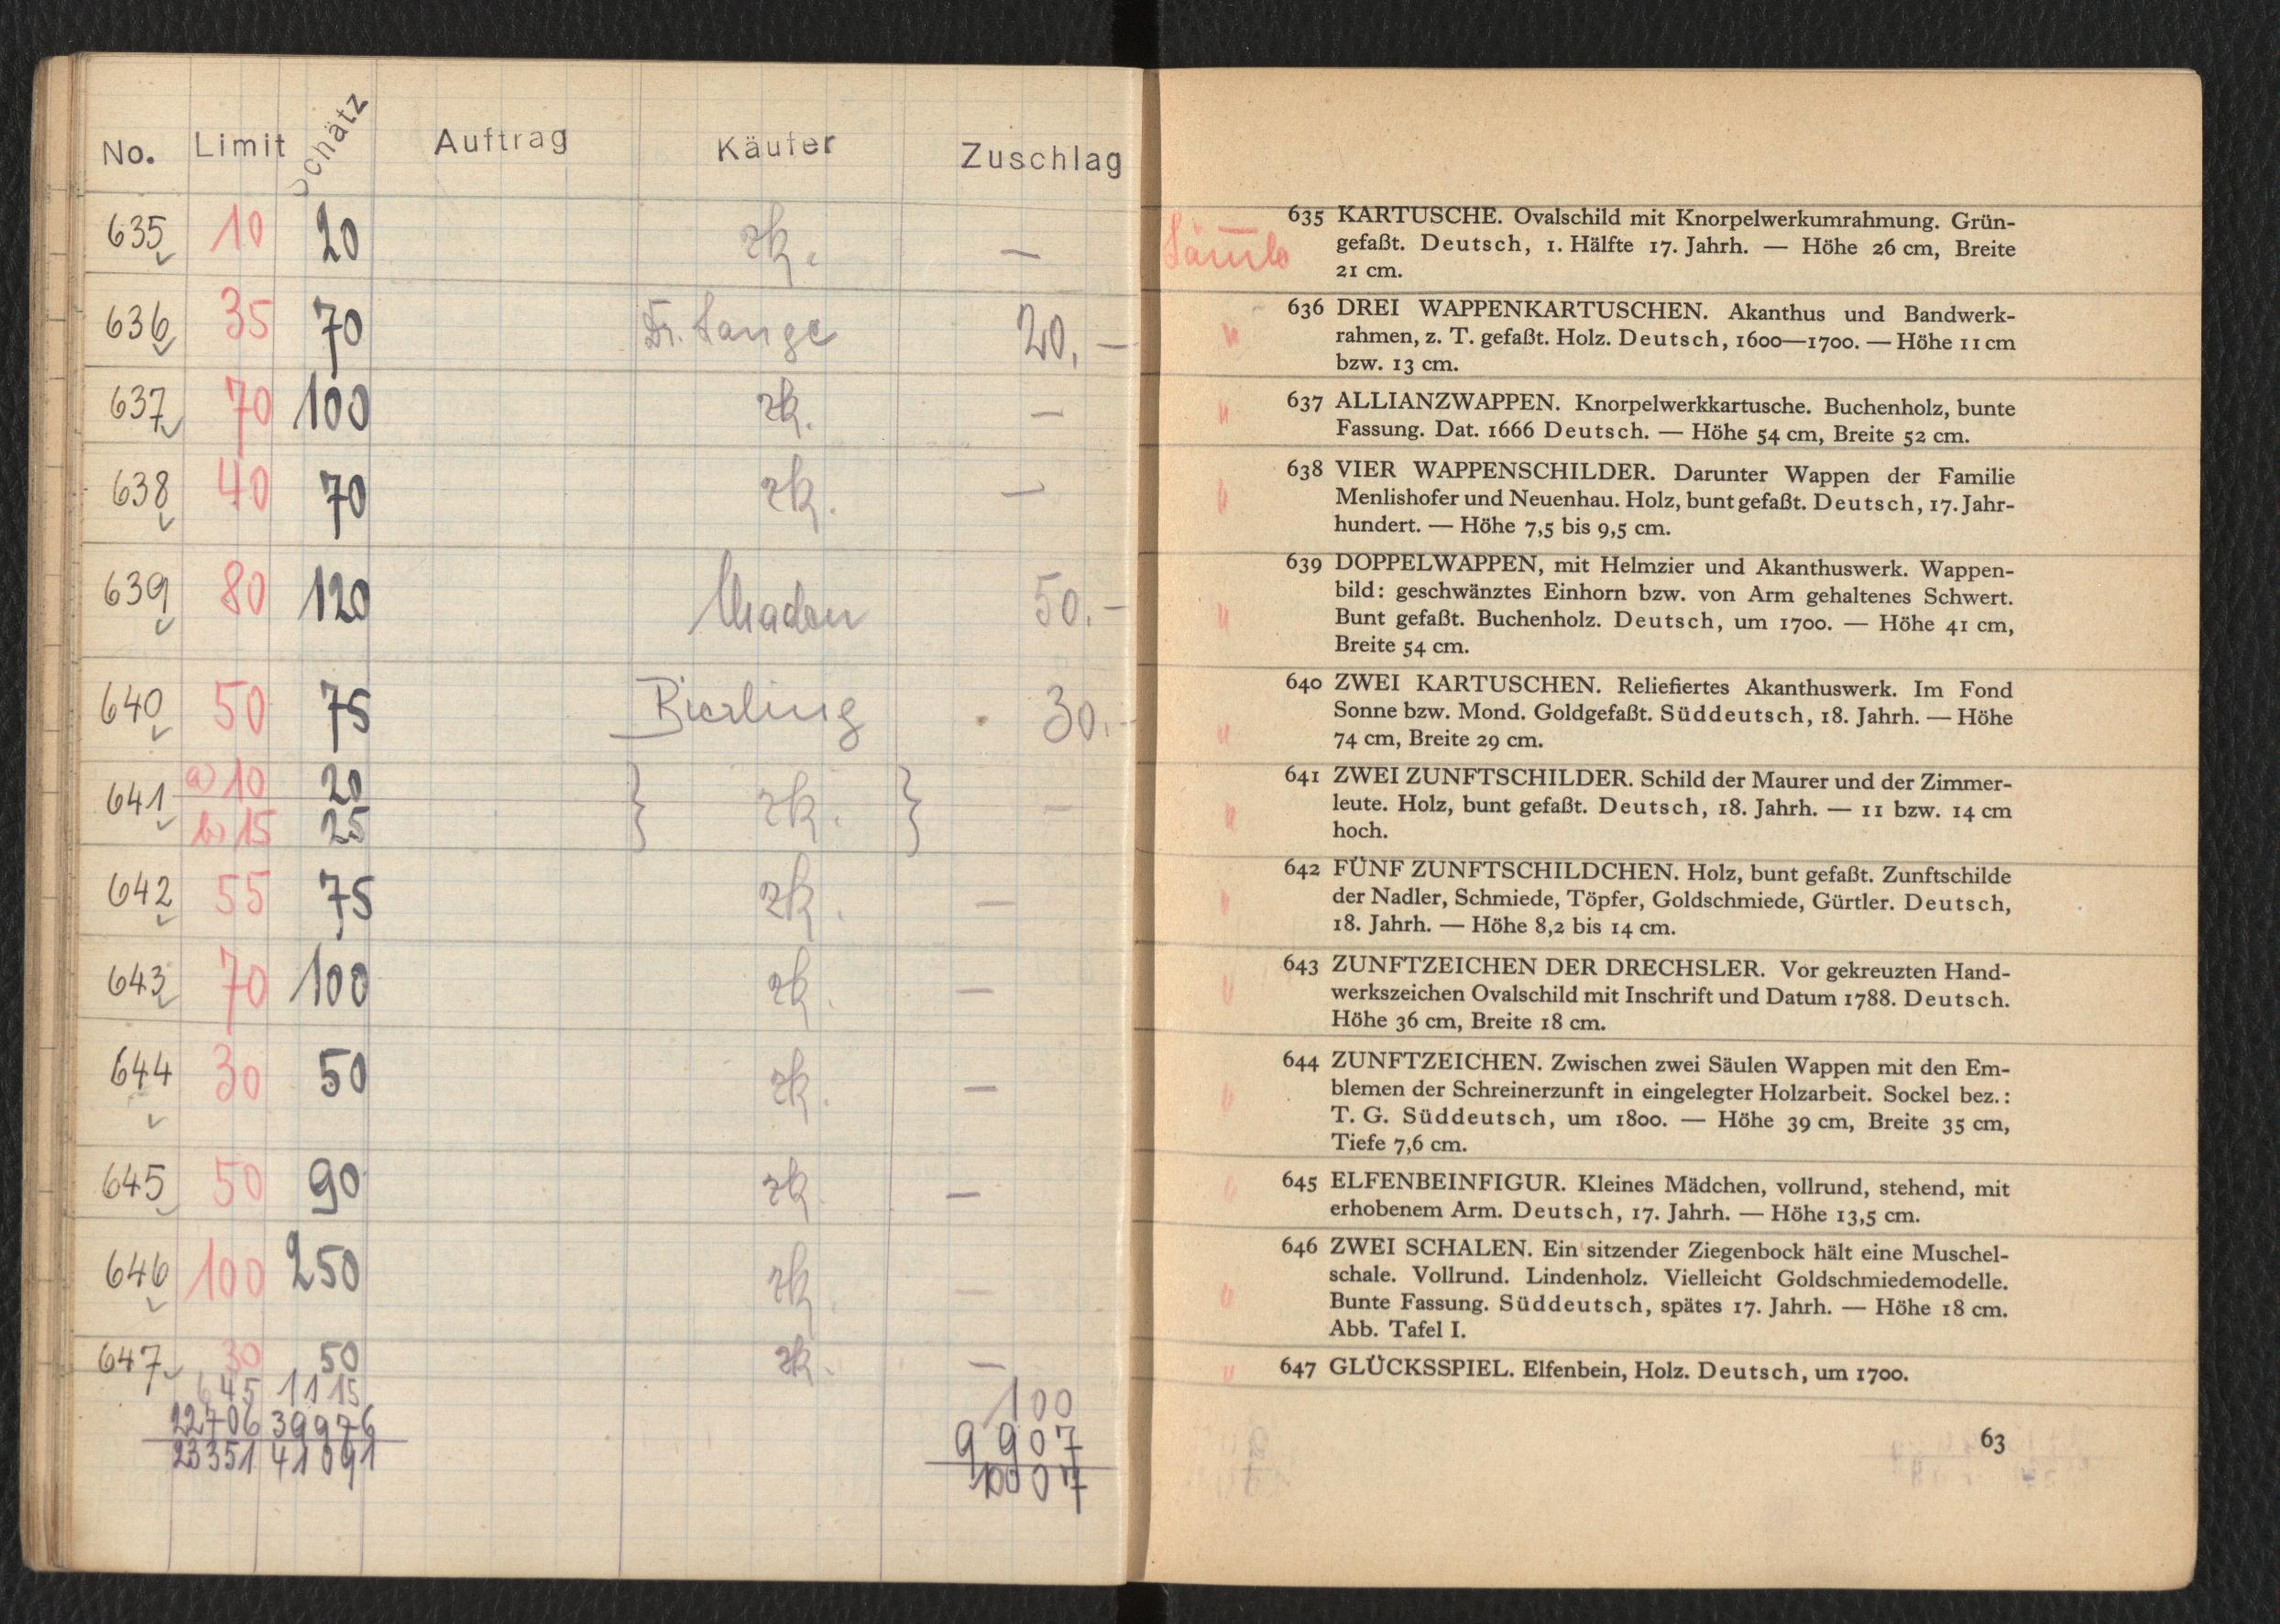 No. Limit Schätz Auftrag Käufer Zuschlag
635 10 20 zk. —
636 35 70 Dr. Lange 20.—
637 70 100 zk. —
638 40 70 zk. —
639 80 120 50.—
640 50 75 Bierling 30.—
641 a) 10 20 zk. —
b) 15 25
642 55 75 zk. —
643 70 100 zk. —
644 30 50 zk. —
645 50 90 zk. —
646 100 250 zk. —
647 30 50 zk. —
645 1115 100
22706 39976 9907
23351 41091 10007
635 KARTUSCHE. Ovalschild mit Knorpelwerkumrahmung. Grün-
gefaßt. Deutsch, 1. Hälfte 17. Jahrh. — Höhe 26 cm, Breite
21 cm.
636 DREI WAPPENKARTUSCHEN. Akanthus und Bandwerk-
rahmen, z. T. gefaßt. Holz. Deutsch, 1600—1700. — Höhe 11 cm
bzw. 13 cm.
637 ALLIANZWAPPEN. Knorpelwerkkartusche. Buchenholz, bunte
Fassung. Dat. 1666 Deutsch. — Höhe 54 cm, Breite 52 cm.
638 VIER WAPPENSCHILDER. Darunter Wappen der Familie
Menlishofer und Neuenhau. Holz, bunt gefaßt. Deutsch, 17. Jahr-
hundert. — Höhe 7,5 bis 9,5 cm.
639 DOPPELWAPPEN, mit Helmzier und Akanthuswerk. Wappen-
bild: geschwänztes Einhorn bzw. von Arm gehaltenes Schwert.
Bunt gefaßt. Buchenholz. Deutsch, um 1700. — Höhe 41 cm,
Breite 54 cm.
640 ZWEI KARTUSCHEN. Reliefiertes Akanthuswerk. Im Fond
Sonne bzw. Mond. Goldgefaßt. Süddeutsch, 18. Jahrh. — Höhe
74 cm, Breite 29 cm.
641 ZWEI ZUNFTSCHILDER. Schild der Maurer und der Zimmer-
leute. Holz, bunt gefaßt. Deutsch, 18. Jahrh. — 11 bzw. 14 cm
hoch.
642 FÜNF ZUNFTSCHILDCHEN. Holz, bunt gefaßt. Zunftschilde
der Nadler, Schmiede, Töpfer, Goldschmiede, Gürtler. Deutsch,
18. Jahrh. — Höhe 8,2 bis 14 cm.
643 ZUNFTZEICHEN DER DRECHSLER. Vor gekreuzten Hand-
werkszeichen Ovalschild mit Inschrift und Datum 1788. Deutsch.
Höhe 36 cm, Breite 18 cm.
644 ZUNFTZEICHEN. Zwischen zwei Säulen Wappen mit den Em-
blemen der Schreinerzunft in eingelegter Holzarbeit. Sockel bez.:
T. G. Süddeutsch, um 1800. — Höhe 39 cm, Breite 35 cm,
Tiefe 7,6 cm.
645 ELFENBEINFIGUR. Kleines Mädchen, vollrund, stehend, mit
erhobenem Arm. Deutsch, 17. Jahrh. — Höhe 13,5 cm.
646 ZWEI SCHALEN. Ein sitzender Ziegenbock hält eine Muschel-
schale. Vollrund. Lindenholz. Vielleicht Goldschmiedemodelle.
Bunte Fassung. Süddeutsch, spätes 17. Jahrh. — Höhe 18 cm.
Abb. Tafel I.
647 GLÜCKSSPIEL. Elfenbein, Holz. Deutsch, um 1700.
63